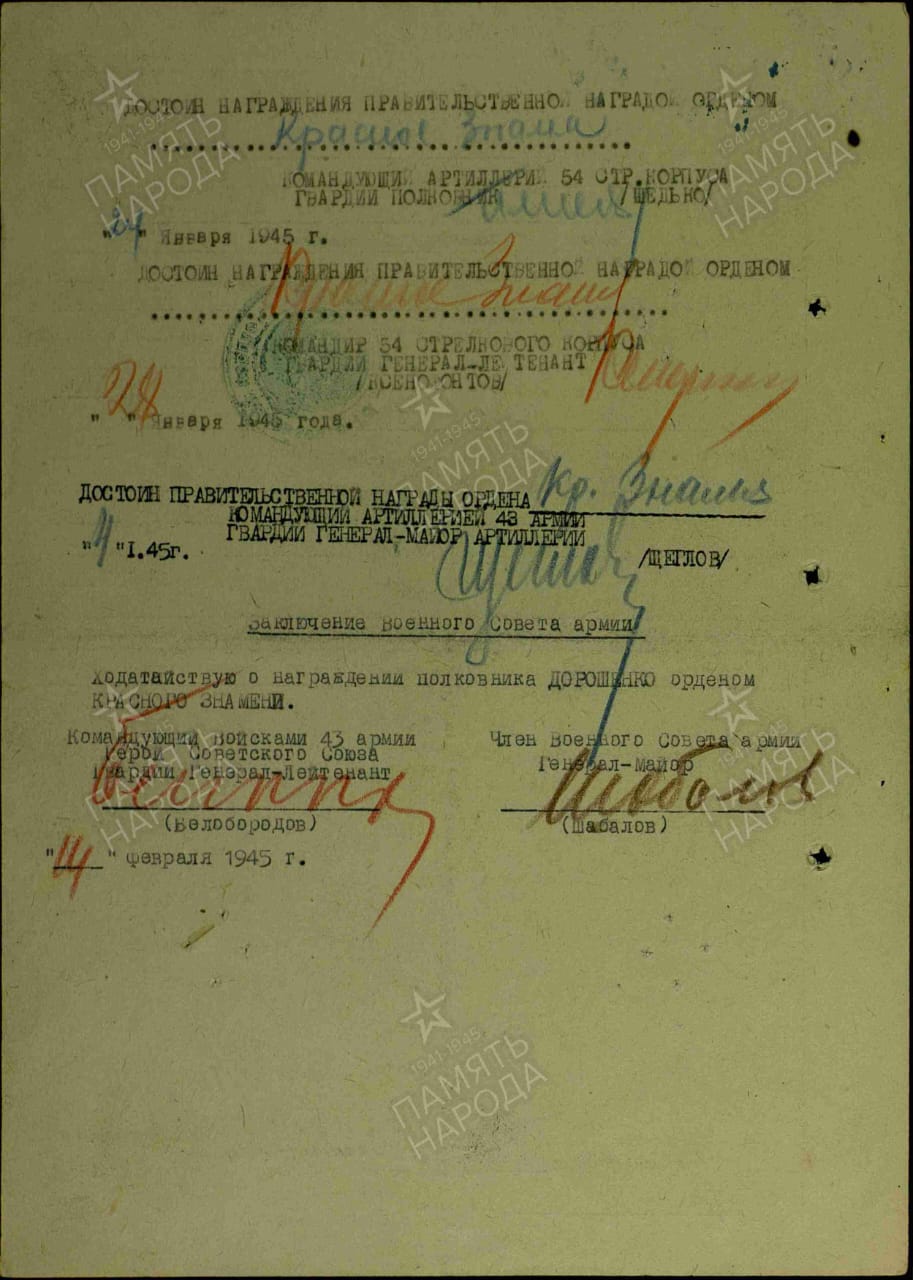 ДОСТОИН НАГРАЖДЕНИЯ ПРАВИТЕЛЬСТВЕННОЙ НАГРАДОЙ ОРДЕНОМ
Красное Знамя
КОМАНДУЮЩИЙ АРТИЛЛЕРИЕЙ 54 СТР.КОРПУСА
ГВАРДИИ ПОЛКОВНИК /ШЕДЬКО/
"24" Января 1945 г.
ДОСТОИН НАГРАЖДЕНИЯ ПРАВИТЕЛЬСТВЕННОЙ НАГРАДОЙ ОРДЕНОМ
Красное Знамя
КОМАНДИР 54 СТРЕЛКОВОГО КОРПУСА
ГВАРДИИ ГЕНЕРАЛ-ЛЕЙТЕНАНТ
/КСЕНОФОНТОВ/
"28" Января 1945 года.
ДОСТОИН ПРАВИТЕЛЬСТВЕННОЙ НАГРАДЫ ОРДЕНА Кр. Знамя
КОМАНДУЮЩИЙ АРТИЛЛЕРИЕЙ 43 АРМИИ
ГВАРДИИ ГЕНЕРАЛ-МАЙОР АРТИЛЛЕРИИ
" "I.45г. /ЩЕГЛОВ/
Заключение Военного Совета армии
Ходатайствую о награждении полковника ДОРОШЕНКО орденом
КРАСНОГО ЗНАМЕНИ.
Командующий войсками 43 армии
Герой Советского Союза
Гвардии Генерал-Лейтенант
(Белобородов)
Член Военного Совета армии
Генерал-майор
Шабалов
(Шабалов)
"14" февраля 1945 г.
1941-1945
ПАМЯТЬ
НАРОДА